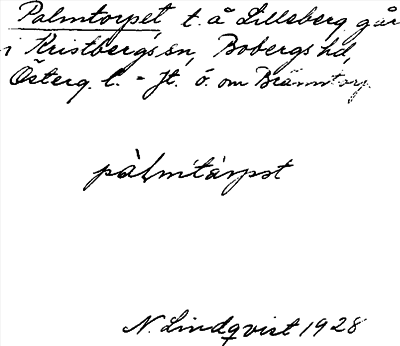 Palmtorpet t. å Lilleberg går
i Kristbergs sn, Bobergs hd,
Österg. l. - Jt. ö. om Bränntorp.
pàlmtàrpət
N. Lindqvist 1928